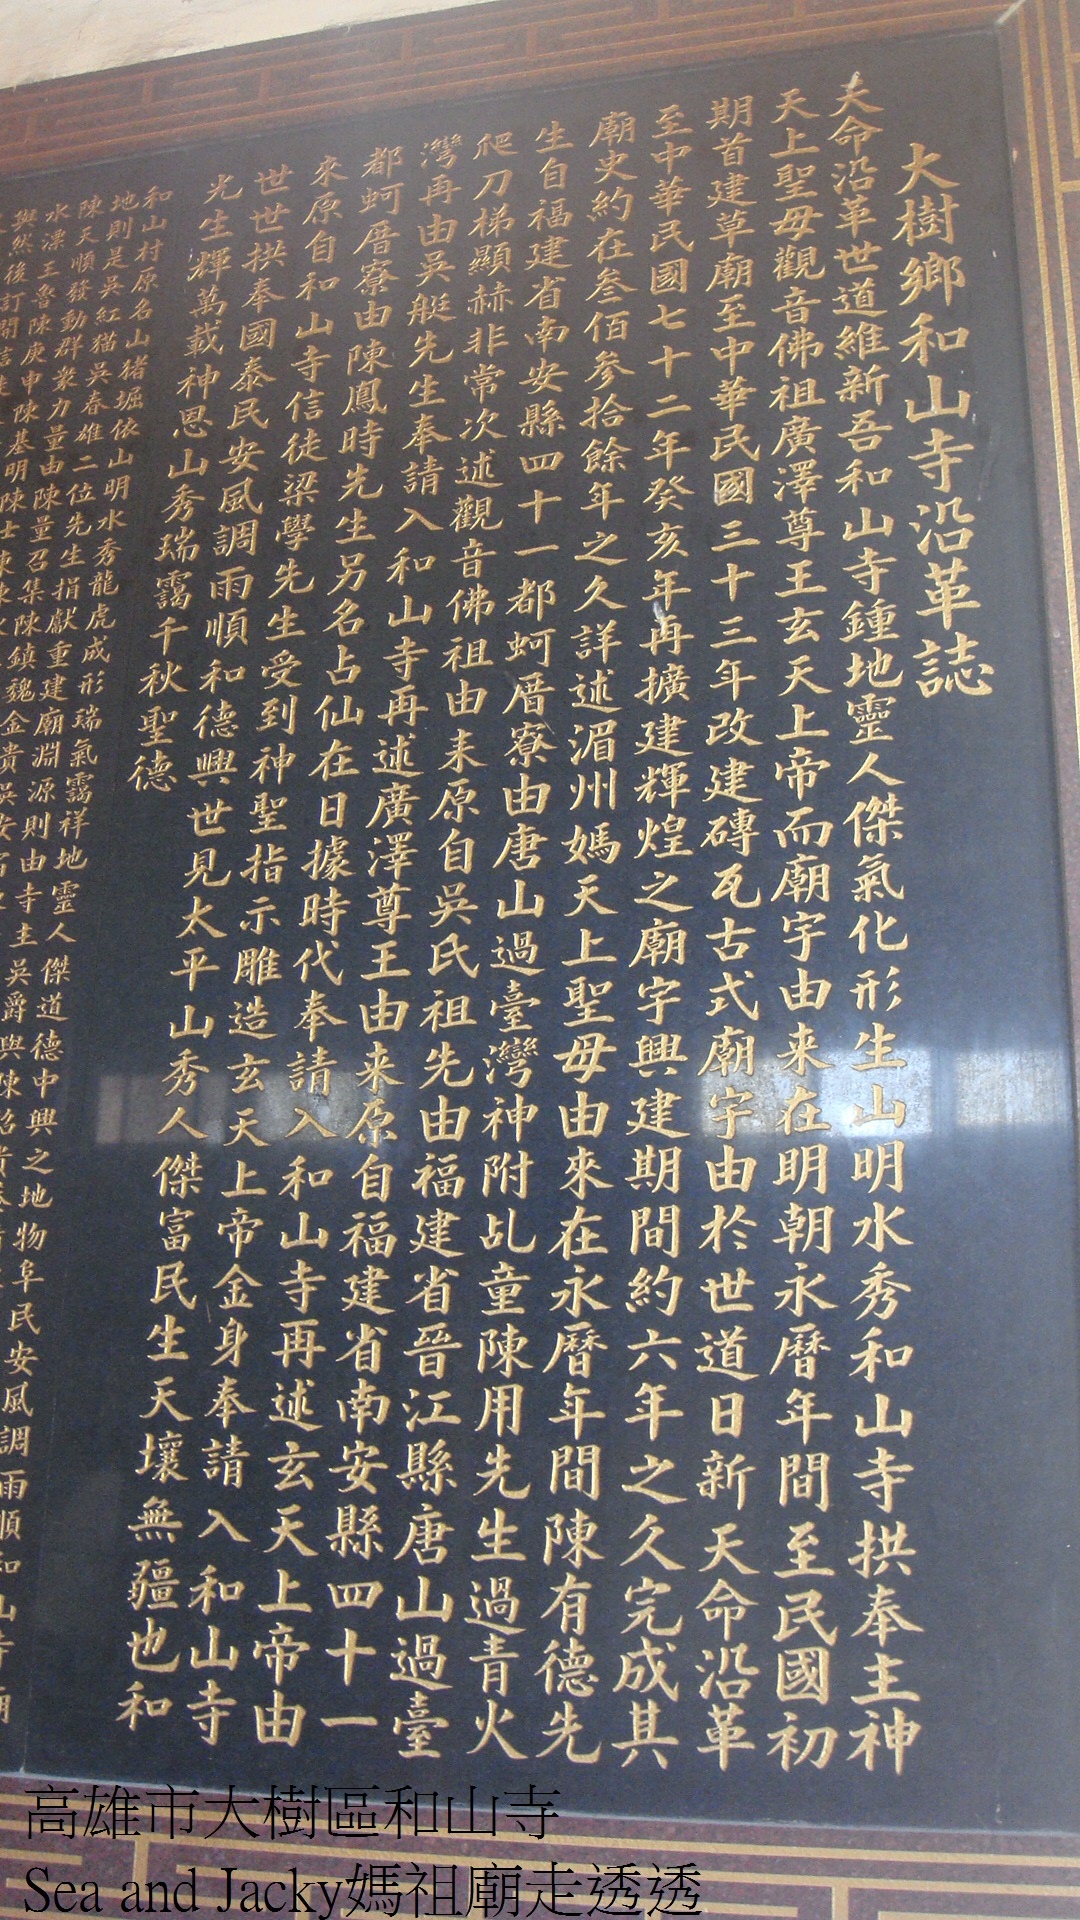 大樹鄉和山寺沿革誌
夫命沿革世道維新吾和山寺鍾地靈人傑氣化形生山明水秀和山寺拱奉主神
天上聖母觀音佛祖廣澤尊王玄天上帝而廟宇由来在明朝永曆年間至民國初
期首建草廟至中華民國三十三年改建磚瓦古式廟宇由於世道日新天命沿革
至中華民國七十二年癸亥年再擴建輝煌之廟宇興建期間約六年之久完成其
廟史約在叁佰參拾餘年之久詳述湄州媽天上聖母由來在永曆年間陳有德先
生自福建省南安縣四十一都蚵厝寮由唐山過臺灣神附乩童陳用先生過青火
爬刀梯顯赫非常次述觀音佛祖由来原自吳氏祖先由福建省晉江縣唐山過臺
灣再由吳艇先生奉請入和山寺再述廣澤尊王由来原自福建省南安縣四十一
都蚵厝寮由陳鳳時先生另名占仙在日據時代奉請入和山寺再述玄天上帝由
來原自和山寺信徒梁學先生受到神聖指示雕造玄天上帝金身奉請入和山寺
世世拱奉國泰民安風調雨順和德興世見太平山秀人傑富民生天壤無疆也和
光生輝萬載神恩山秀瑞靄千秋聖德
和山村原名山猪堀依山明水秀龍虎成形瑞氣靄祥地靈人傑道德中興之地物阜民安風調雨順和山寺廟
地則是吳紅猫吳春雄二位先生捐獻重建廟淵源則由寺主吳爵興陳
陳天順發動群衆力量由陳量召集陳鎮魏金貴吳安
水漂王魯陳庚申陳基明陳士陳
與然後訂
高雄市大樹區和山寺
Sea and Jacky媽祖廟走透透